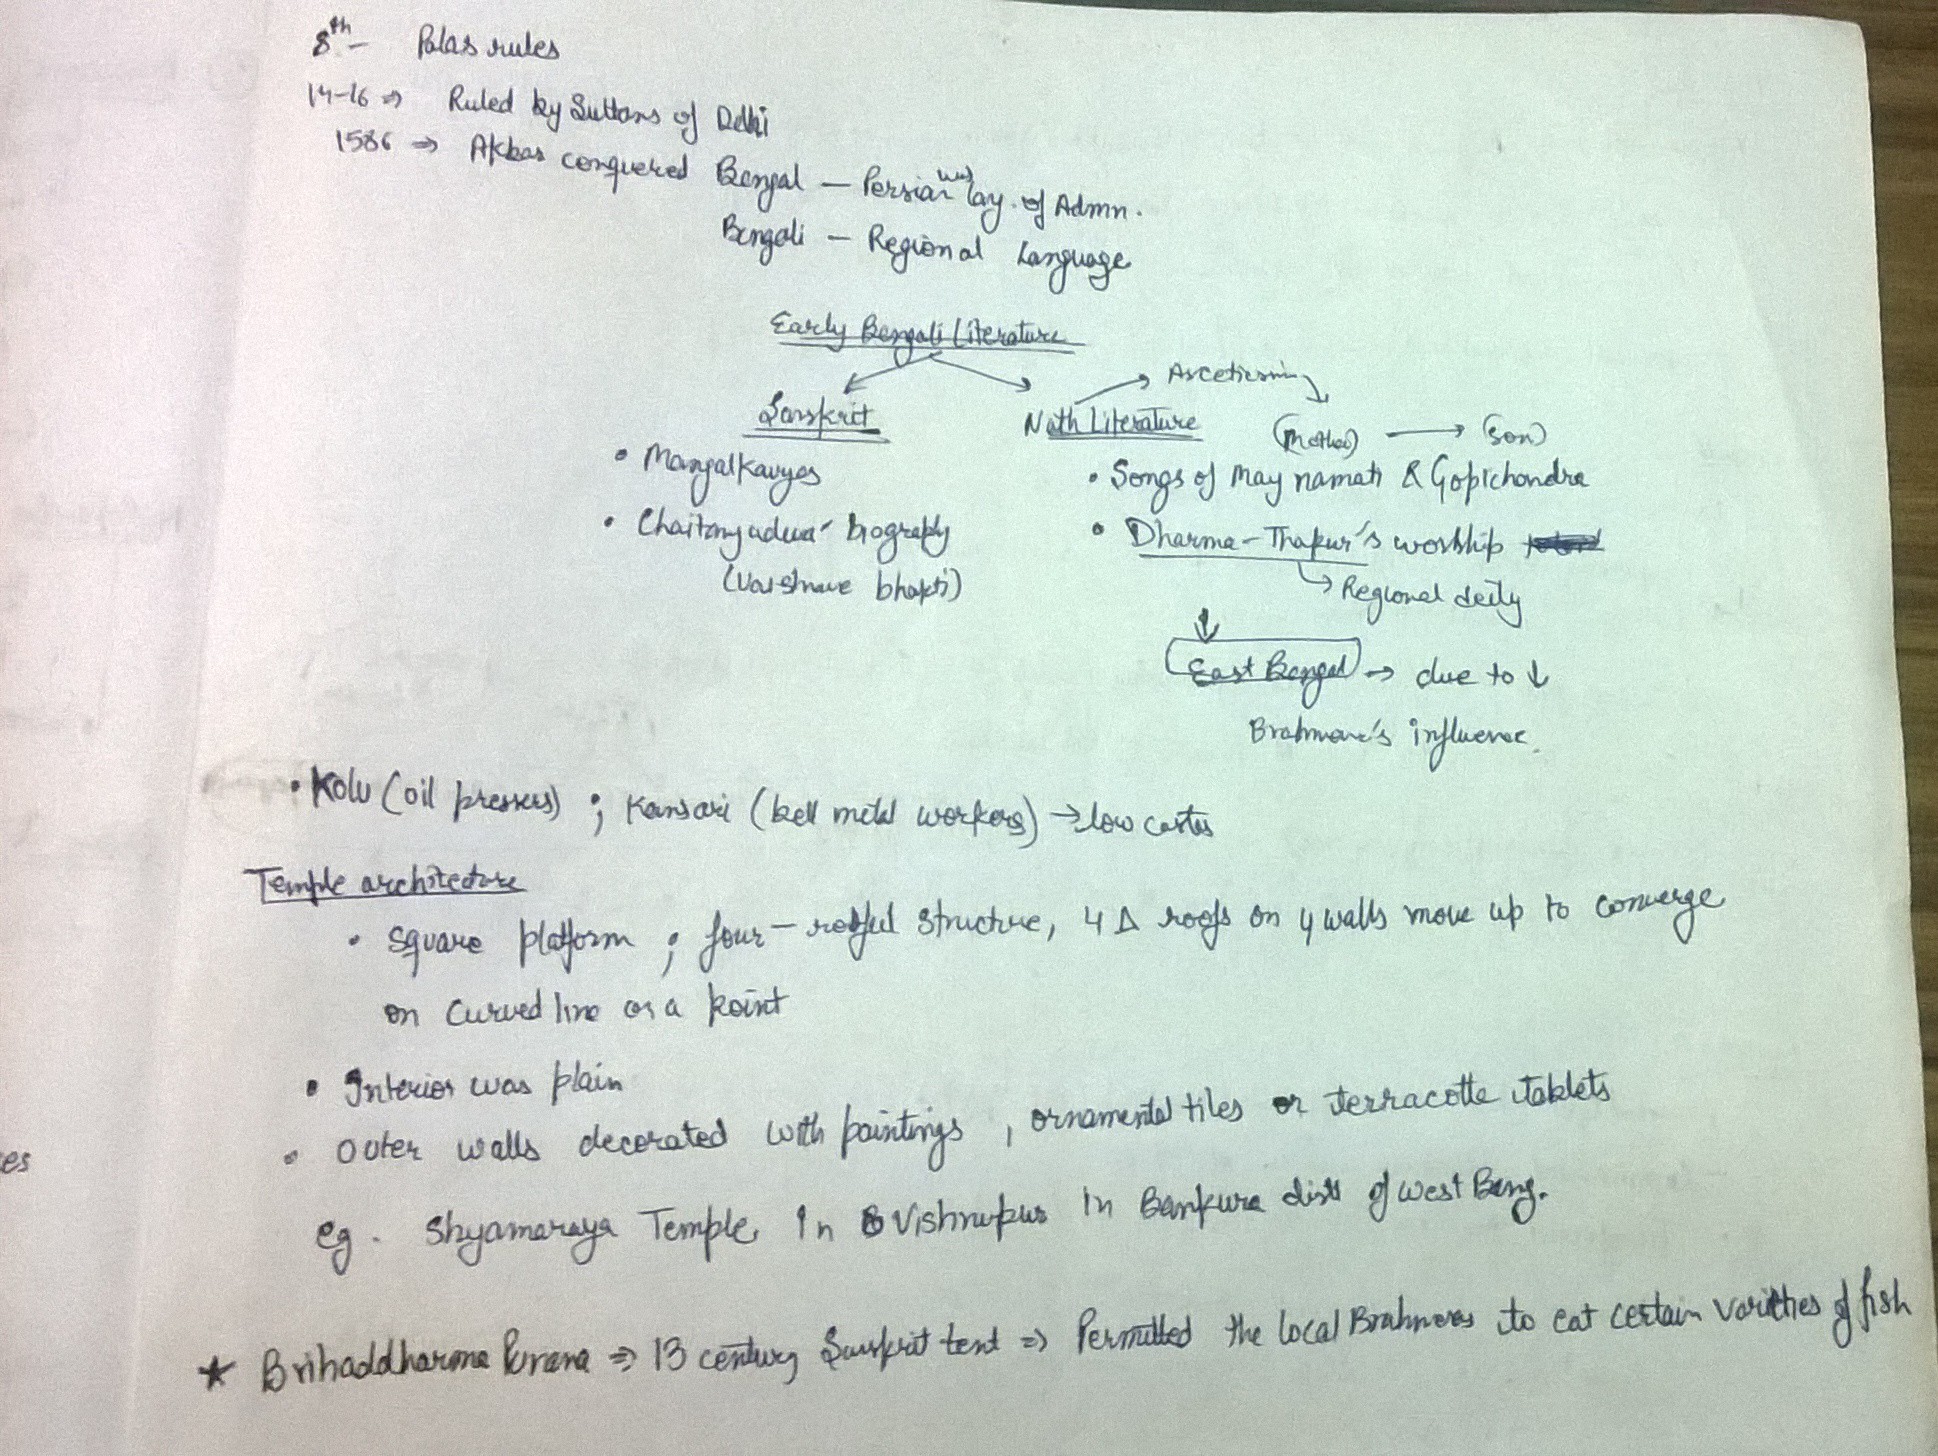 8th – Palas rules
14-16 ⇒ Ruled by Sultans of Delhi
1586 ⇒ Akbar conquered Bengal — Persian was lang. of Admn.
Bengali — Regional Language
Early Bengali Literature
Sanskrit
Nath Literature → Asceticism
(Mother) → (son)
• Mangalkavyas
• Songs of Maynamati & Gopichandra
• Chaitanyadeva biography
(Vaishnave bhakti)
• Dharma-Thakur's worship
→ Regional deity
↓
East Bengal → due to ↓
Brahmana's influence.
• Kolu (oil pressers) ; Kansari (bell metal workers) → low castes
Temple architecture
• square platform ; four-roofed structure, 4 Δ roofs on 4 walls move up to converge
on curved line or a point
• Interior was plain
• Outer walls decorated with paintings, ornamental tiles or terracotta tablets
eg. Shyamaraya Temple in Vishnupur in Bankura distt of west Beng.
★ Brihaddharma Purana ⇒ 13 century Sanskrit text ⇒ Permitted the local Brahmanas to eat certain varieties of fish
es